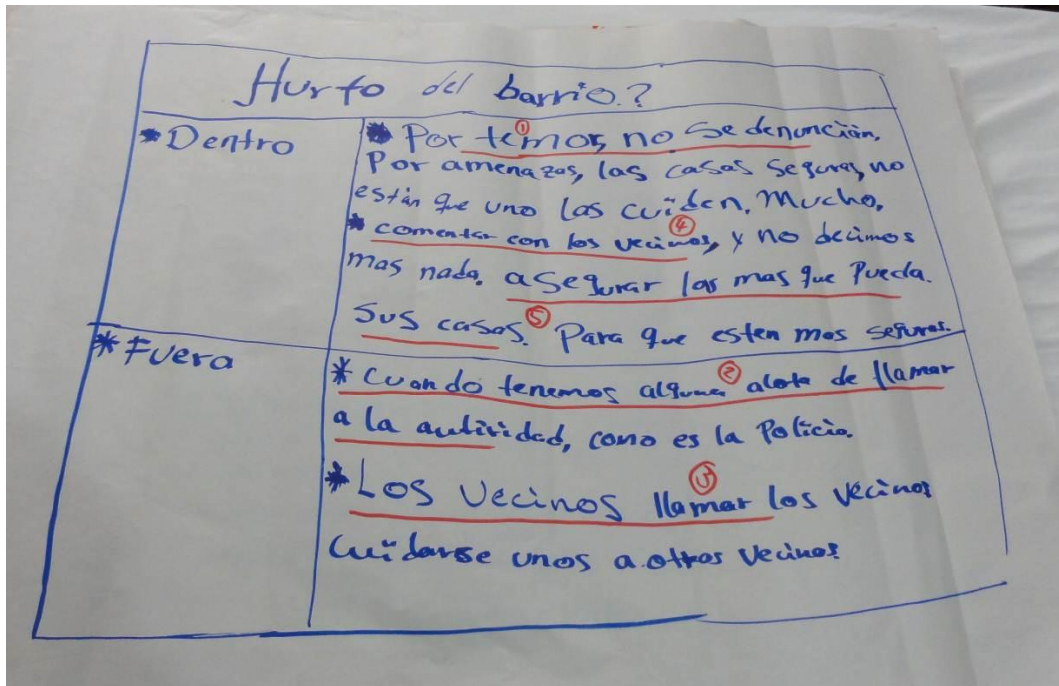 Hurto del barrio?
* Dentro
* Por temor, no se denuncian,
Por amenazas, las casas seguras, no
están que uno las cuiden, Mucho,
* comentar con los vecinos, y no decimos
mas nada. asegurar las mas que Pueda.
Sus casas. Para que esten mas seguras.
* Fuera
* Cuando tenemos alguna alerta de llamar
a la autoridad, como es la Policia.
* Los Vecinos llamar los vecinos
Cuidarse unos a otros Vecinos
1
4
5
2
3